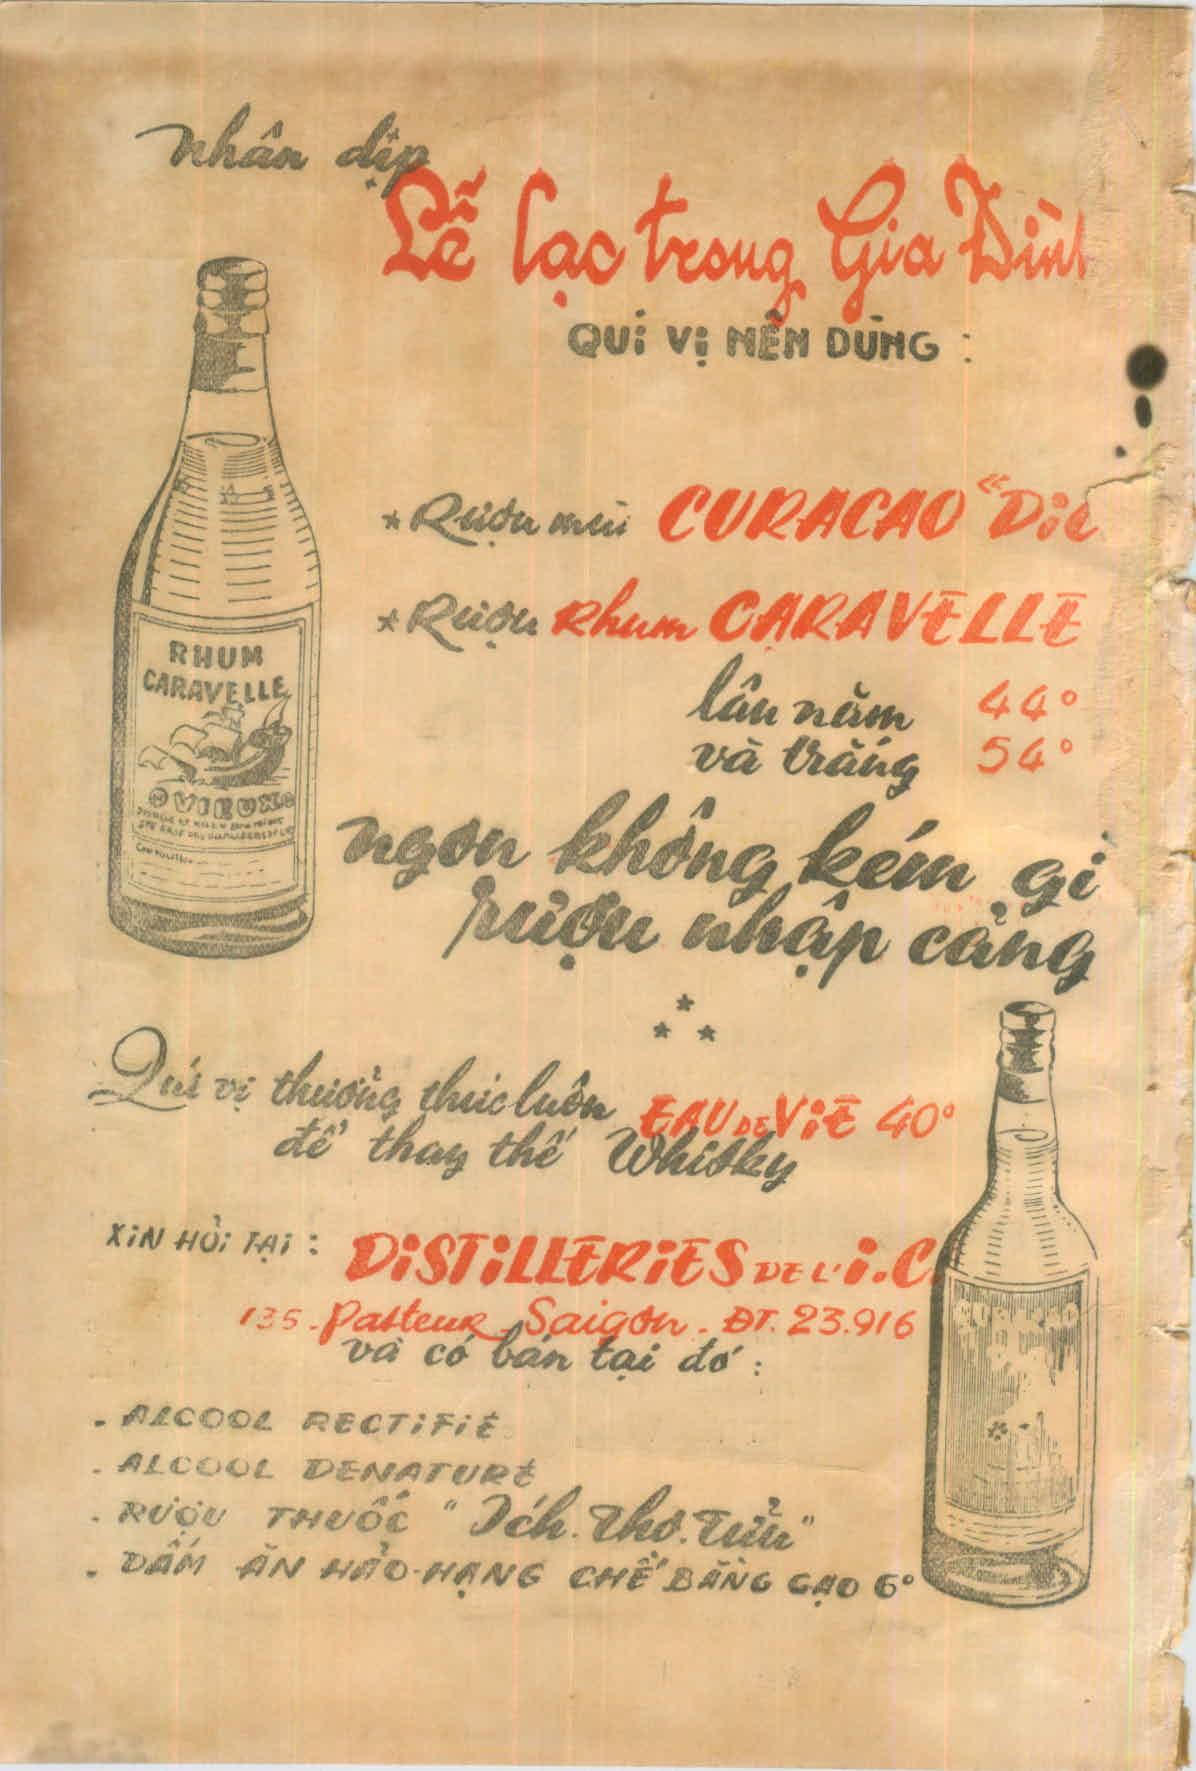 Nhân dịp
Lễ lạc trong Gia Đình
QUÍ VỊ NÊN DÙNG :
* Rượu mùi CURACAO "Dic
* Rượu Rhum CARAVELLE
lâu năm 44°
và trắng 54°
ngon không kém gì
rượu nhập cảng
RHUM
CARAVELLE
VIEUX
Quí vị thưởng thức luôn EAU DE VIE 40°
để thay thế Whisky
XIN HỎI TẠI :
DISTILLERIES DE L'I.C.
135 - Pasteur - Saigon - ĐT. 23.916
và có bán tại đó :
. ALCOOL RECTIFIÉ
. ALCOOL DENATURÉ
. RƯỢU THUỐC "Ích-Thọ-Tửu"
. DẤM ĂN HẢO-HẠNG CHẾ BẰNG GẠO 6°
CURACAO